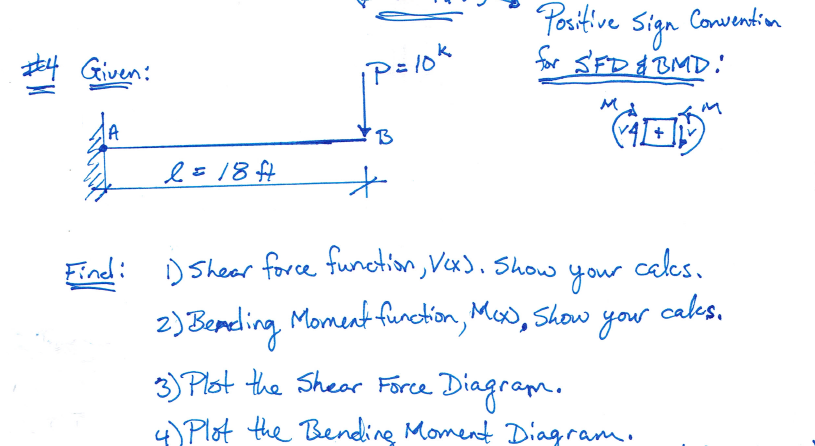 Positive Sign Convention
for SFD & BMD:
#4 Given:
P = 10ᵏ
M M
V + V
A
B
l = 18 ft
Find: 1) Shear force function, V(x). Show your calcs.
2) Bending Moment function, M(x), Show your calcs.
3) Plot the Shear Force Diagram.
4) Plot the Bending Moment Diagram.